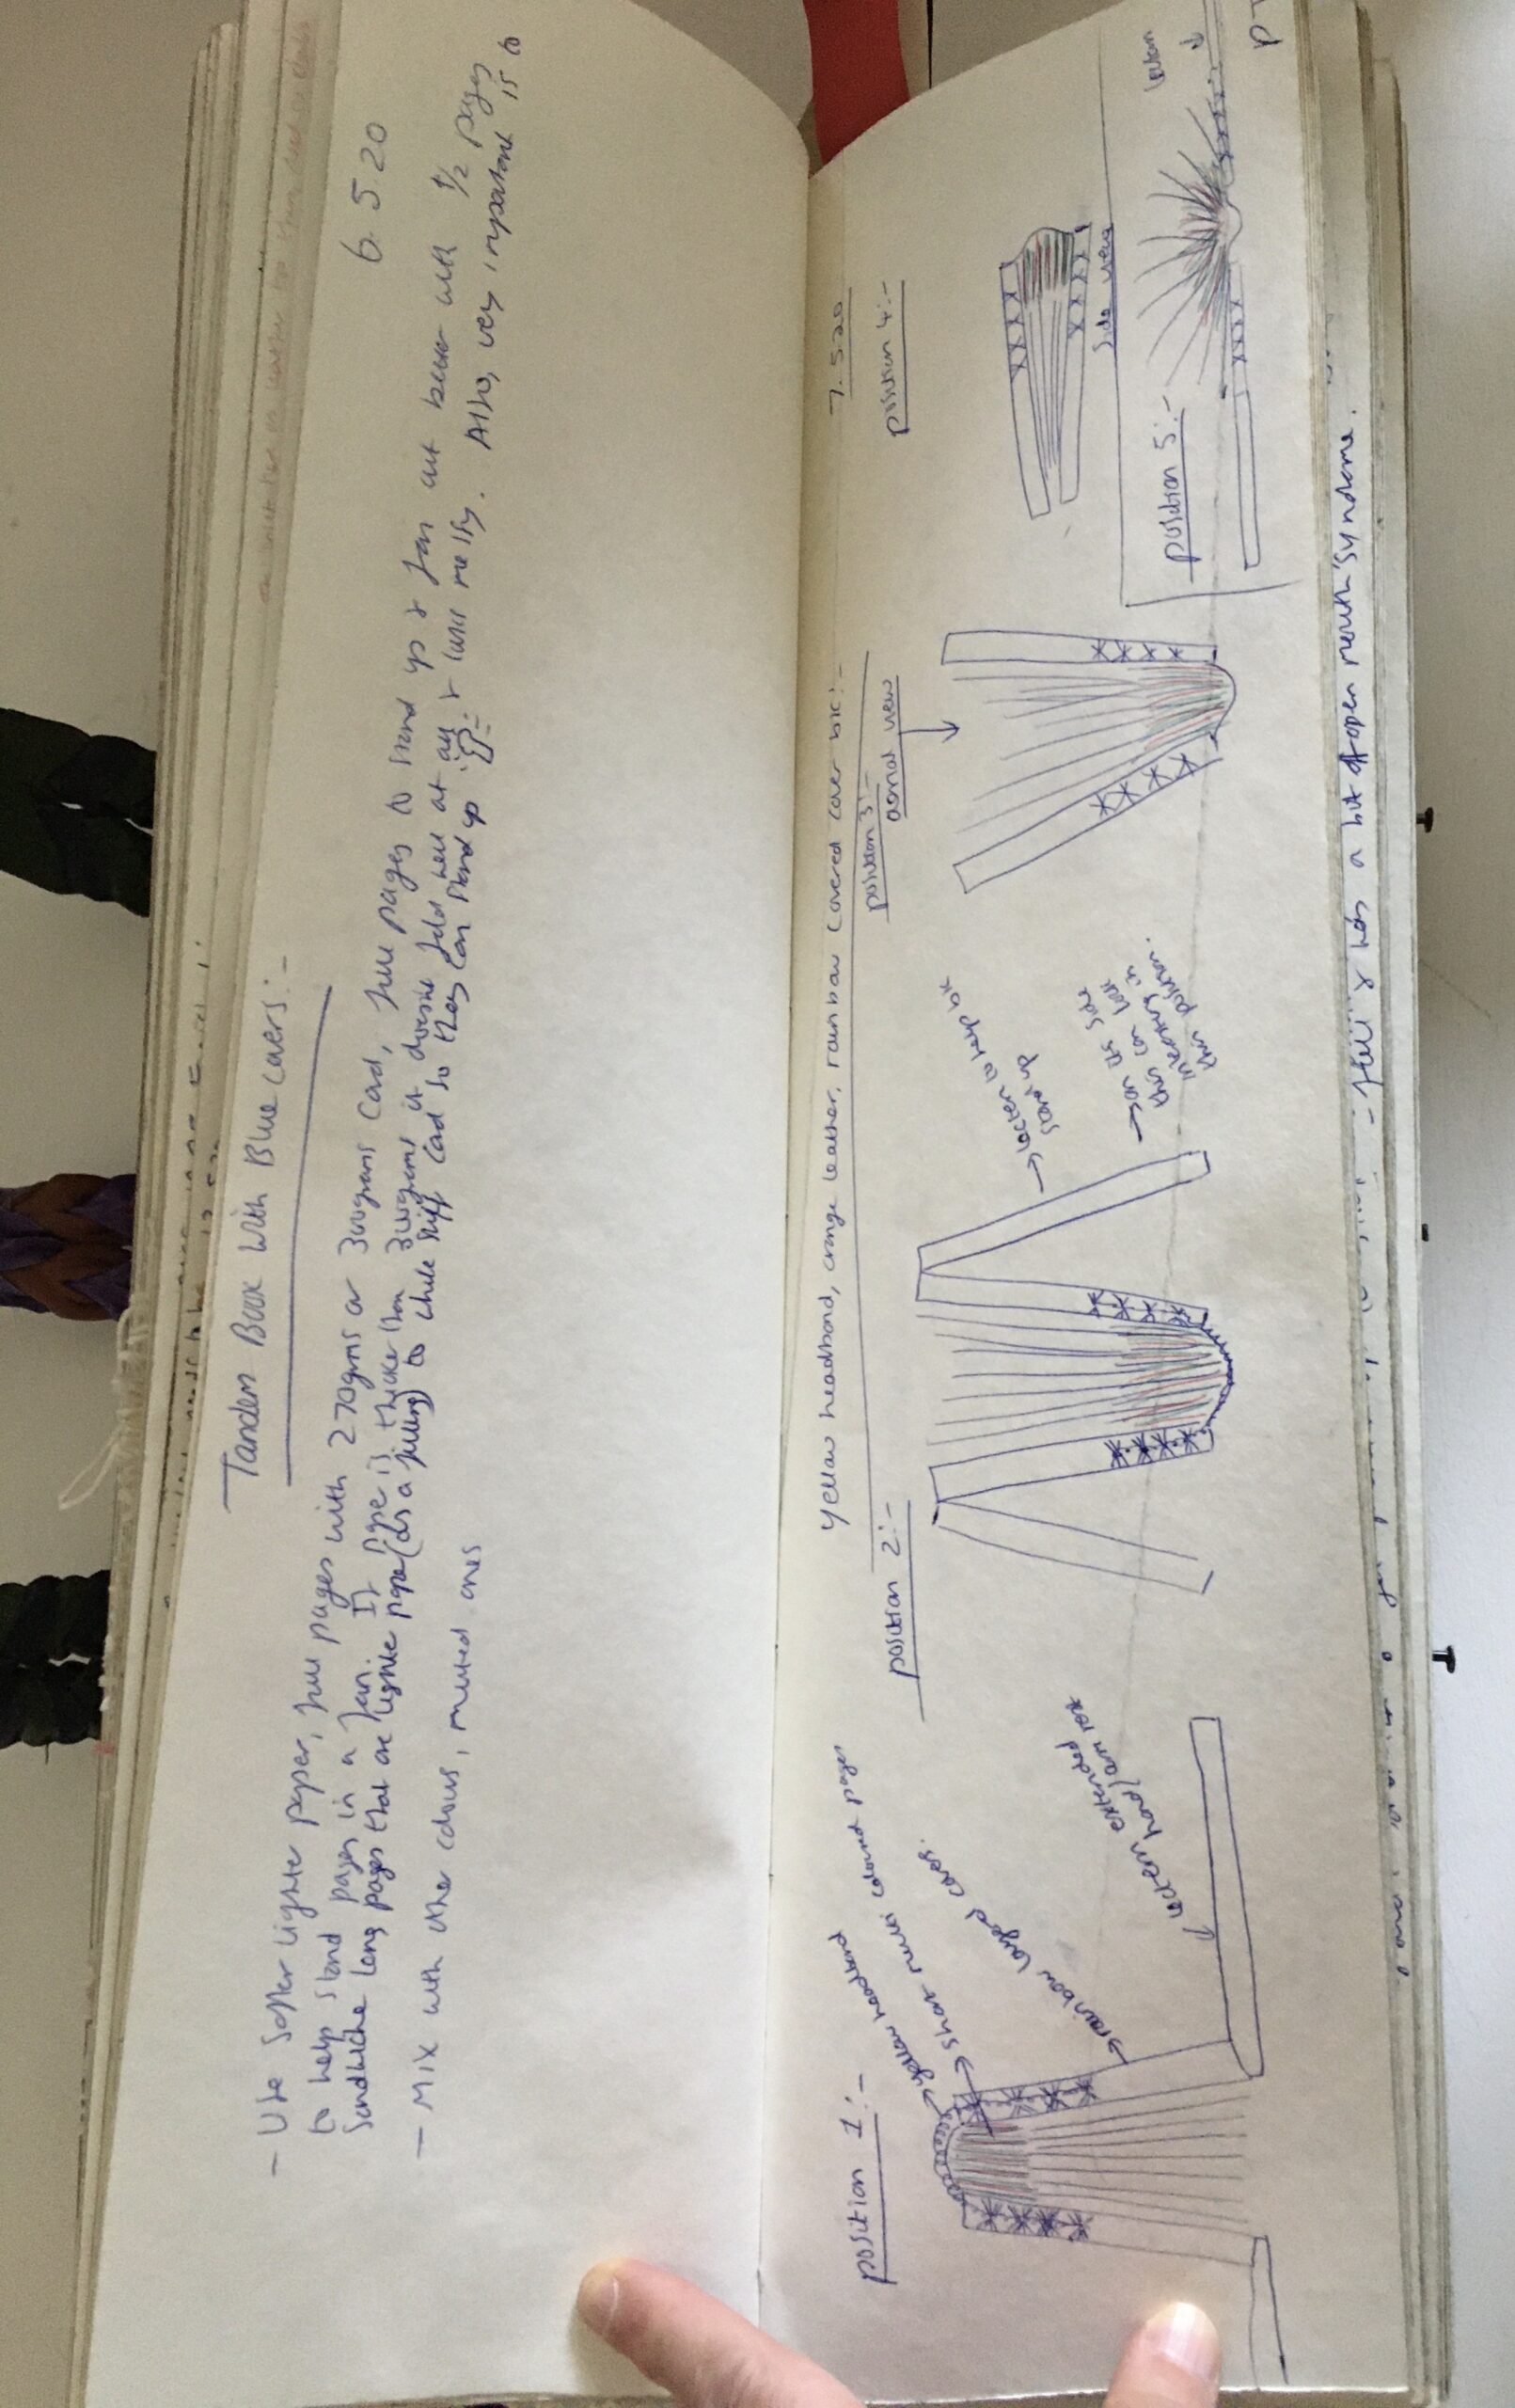 Tandem Book With Blue Covers:-
6.5.20
- Use softer lighter paper, full pages with 270grms or 300grams card, full pages to stand up & fan out better with 1/2 pages
to help stand pages in a fan. If page is thicker than 300grms it doesnt fold well at all & looks messy. Also, very important is to
sandwiche long pages that are lighte paper (as a filling) to while stiff card so they can stand up
- Mix with other colours, muted ones
7.5.20
yellow headband, orange leather, rainbow covered cover bk:-
position 1:-
→ yellow headband
→ short multi coloured pages
→ rainbow layered cover.
lectern extended
hand/arm rest
position 2:-
→ lectern to help bk
stand up
→ on its side
this can look
interesting in
this position.
position 3:-
aerial view
position 4:-
side view
position 5:-
lectern
- still & has a bit of 'open mouth' syndrome.